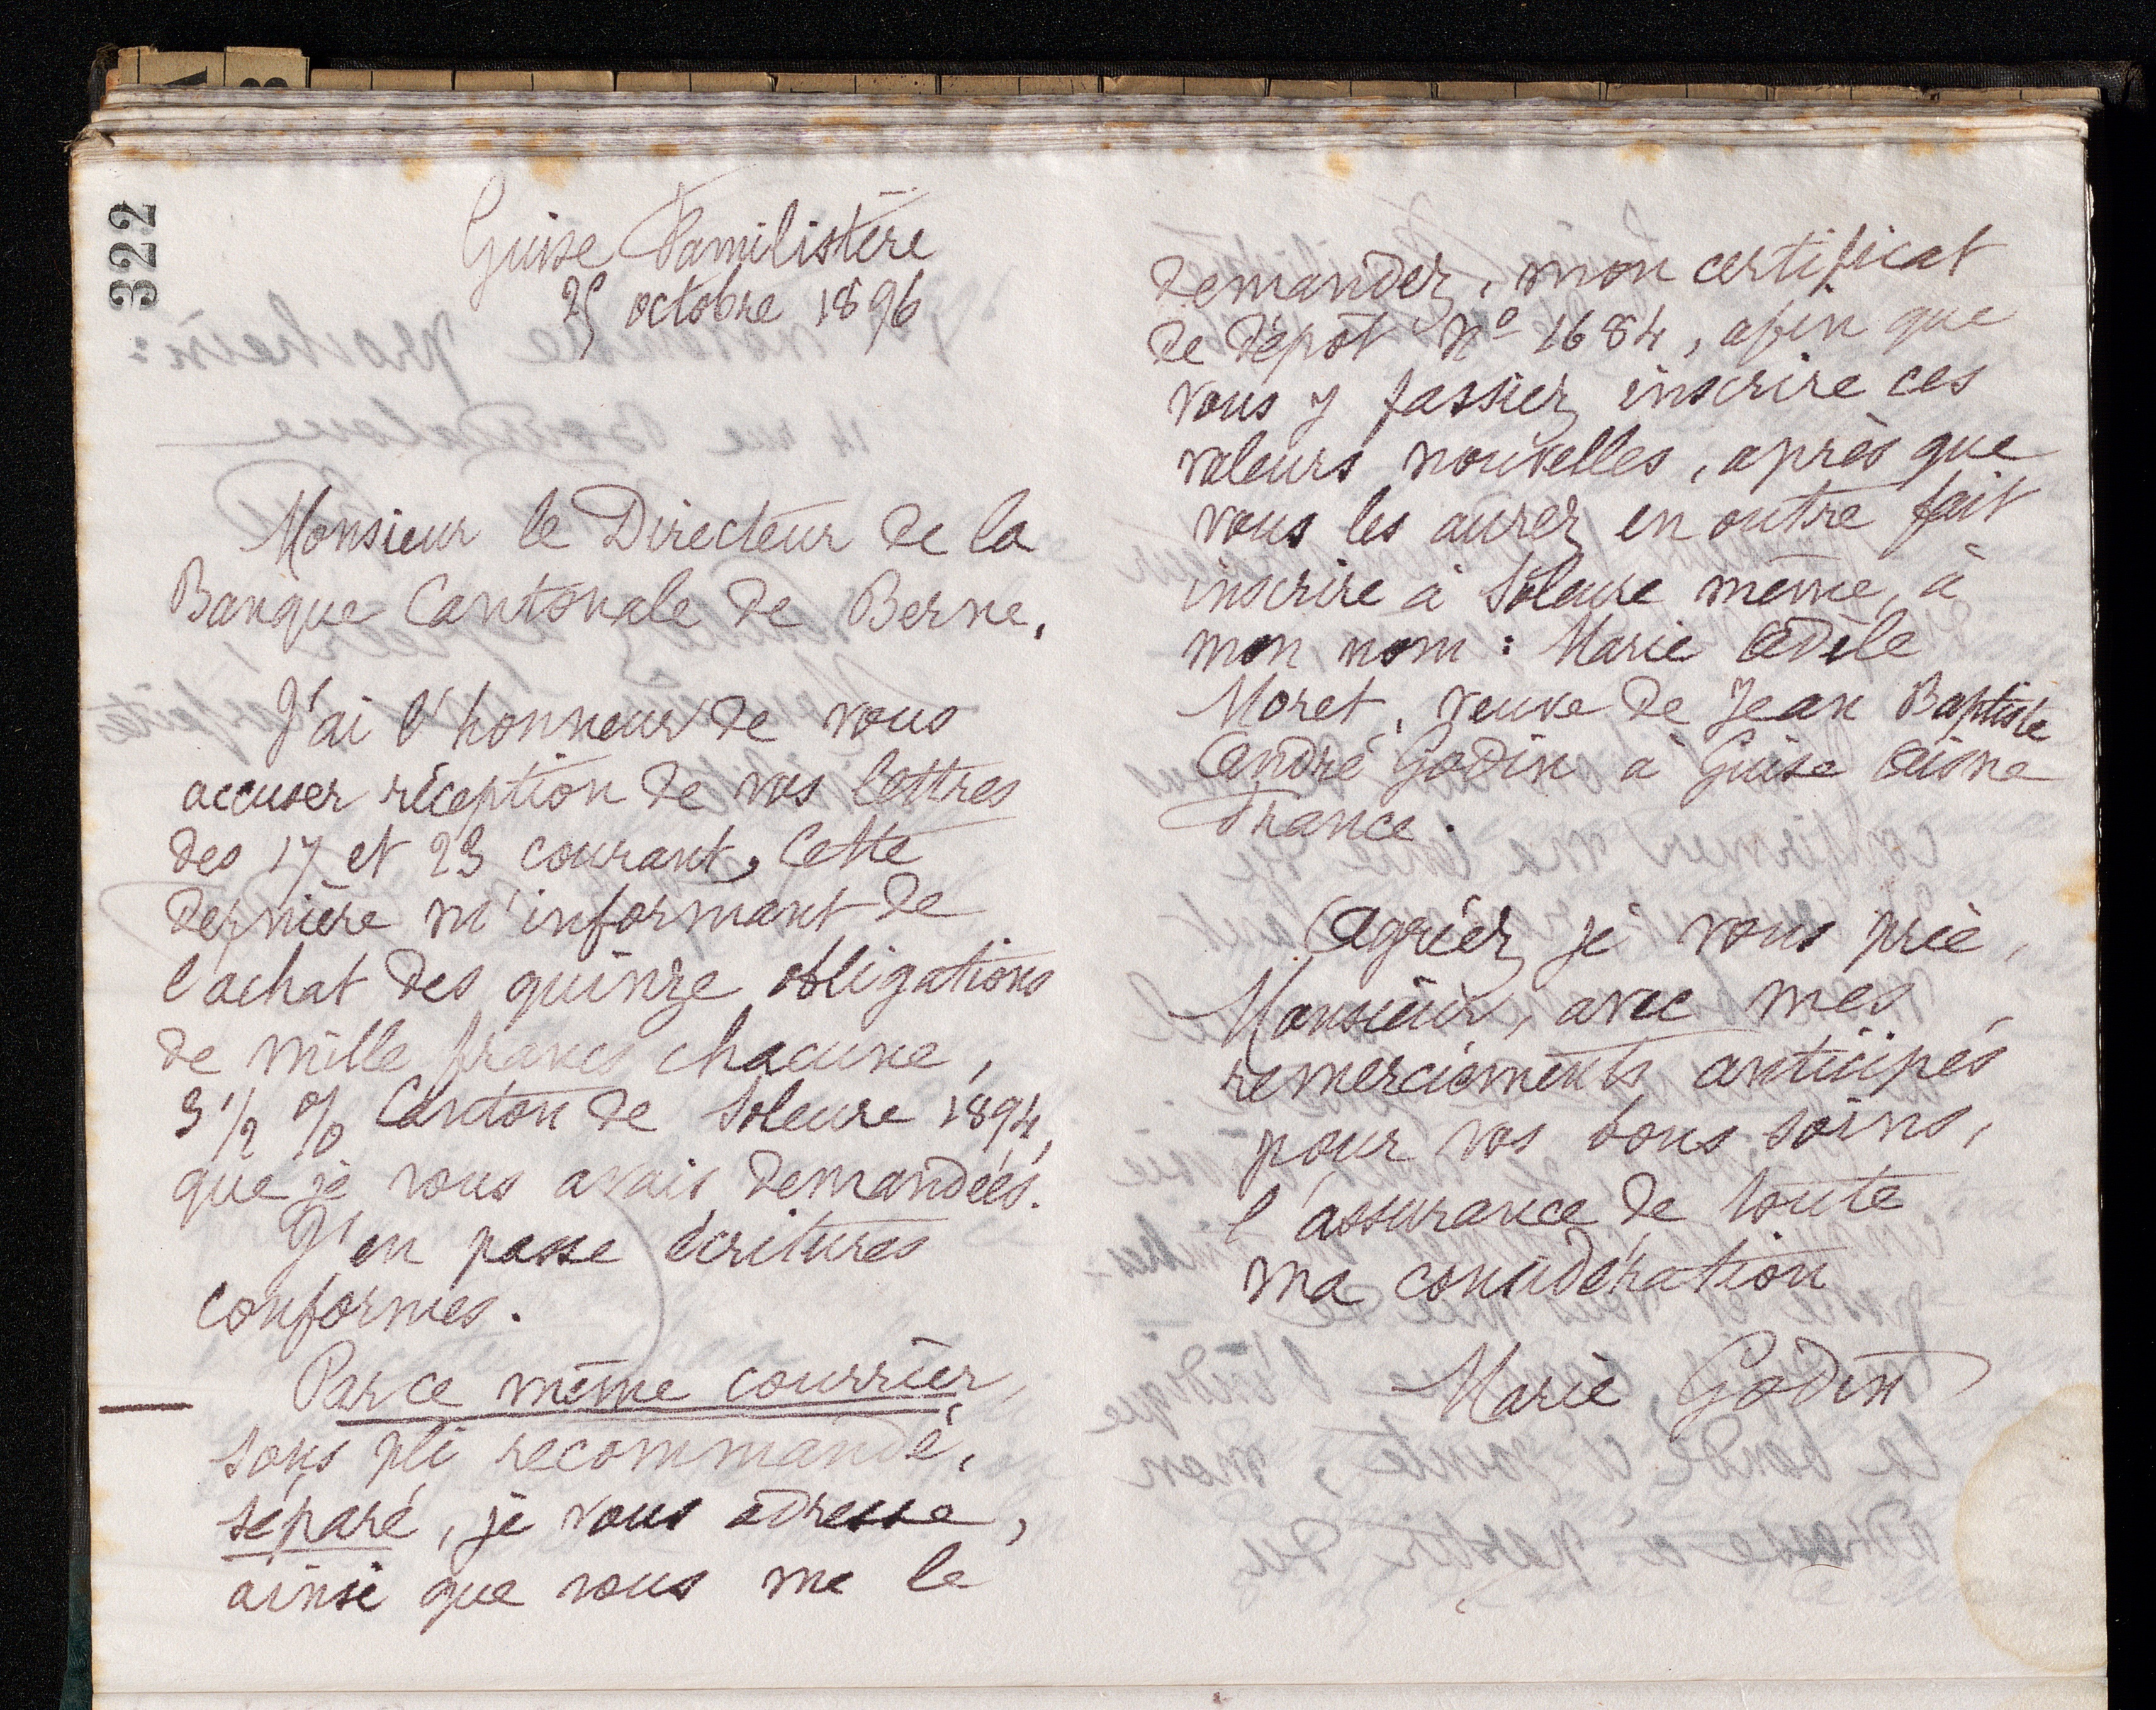 322
Guise Familistère
25 octobre 1896
Monsieur le Directeur de la
Banque Cantonale de Berne,
J'ai l'honneur de vous
accuser réception de vos lettres
des 17 et 23 courant, Cette
dernière m'informant de
l'achat des quinze obligations
de mille francs chacune,
3 1/2 % Canton de Soleure 1894,
que je vous avais demandées.
J'en passe écritures
conformes.
Par ce même courrier,
sous pli recommandé,
séparé, je vous adresse,
ainsi que vous me le
demandez, mon certificat
de dépôt no 1684, afin que
vous y fassiez inscrire ces
valeurs nouvelles, après que
vous les aurez en outre fait
inscrire à Soleure même, à
mon nom : Marie Adèle
Moret, veuve de Jean Baptiste
André Godin à Guise Aisne
France.
Agréez je vous prie,
Monsieur, avec mes
remerciements anticipés
pour vos bons soins,
l'assurance de toute
ma considération
Marie Godin